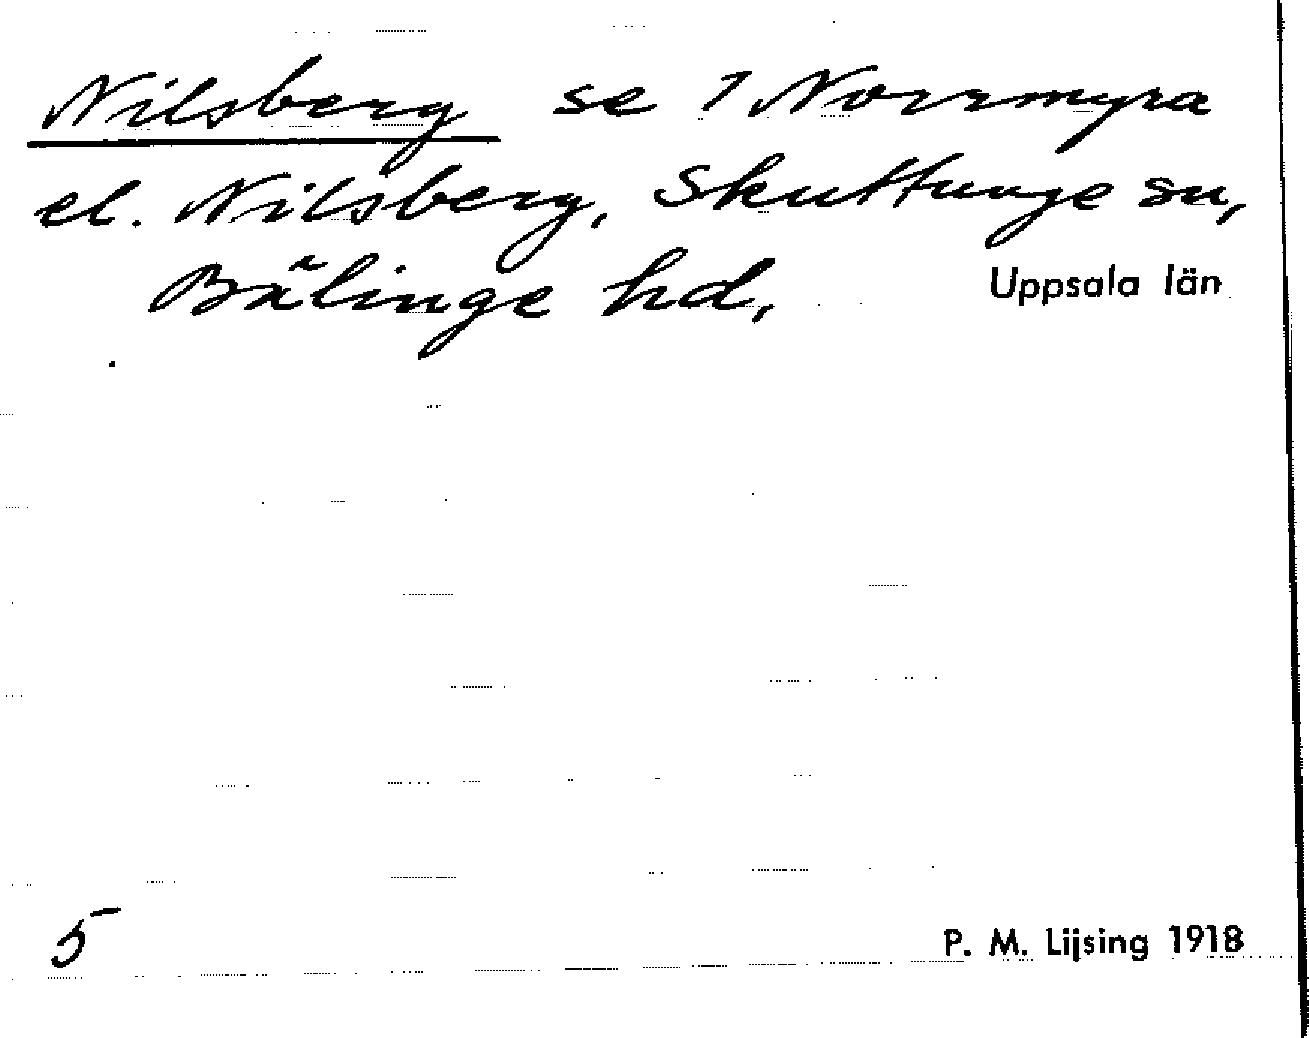 Nilsberg se 1 Norrmyra
el. Nilsberg, Skuttunge sn,
Bälinge hd, Uppsala län
5
P. M. Lijsing 1918